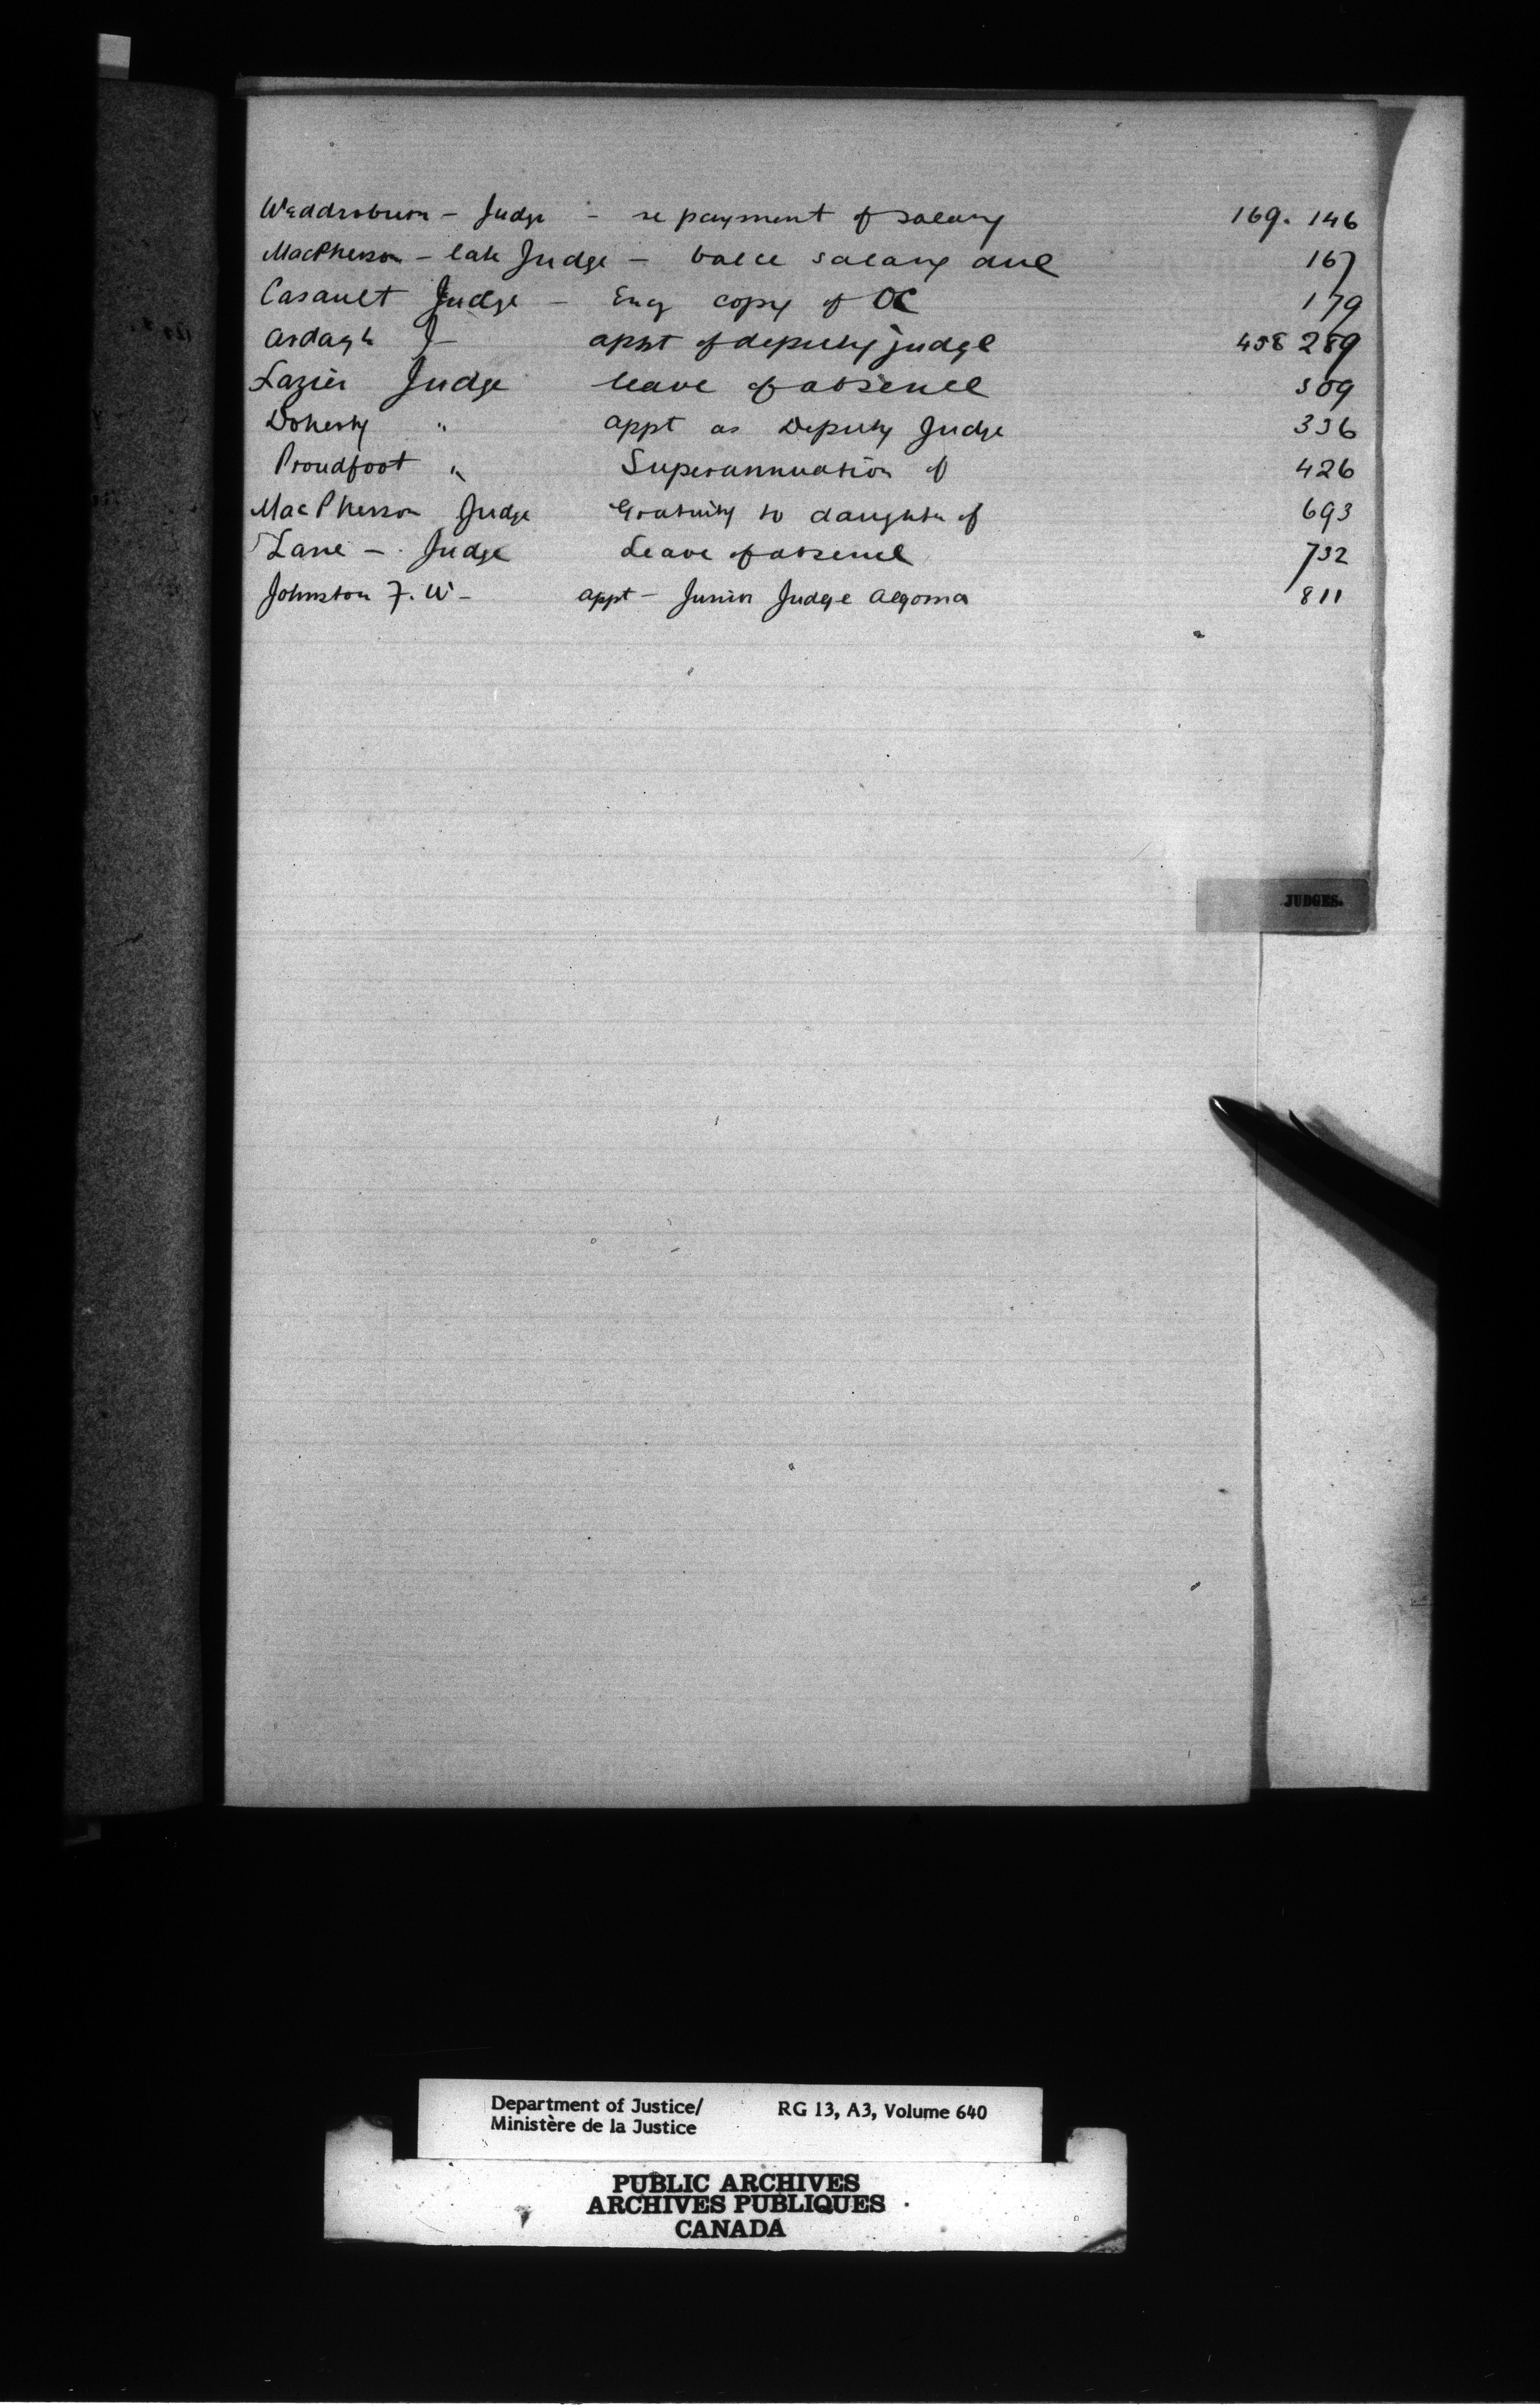 Wedderburn - Judge - re payment of salary 169. 146
MacPherson - late Judge - balce salary due 167
Casault Judge - Enq copy of OC 179
Ardagh J - appt of deputy judge 458 289
Lazier Judge leave of absence 309
Doherty " appt as Deputy Judge 336
Proudfoot " Superannuation of 426
MacPherson Judge Gratuity to daughter of 693
Lane - Judge Leave of absence 732
Johnston F. W - appt - Junior Judge Algoma 811
JUDGES.
Department of Justice/ RG 13, A3, Volume 640
Ministère de la Justice
PUBLIC ARCHIVES
ARCHIVES PUBLIQUES
CANADA